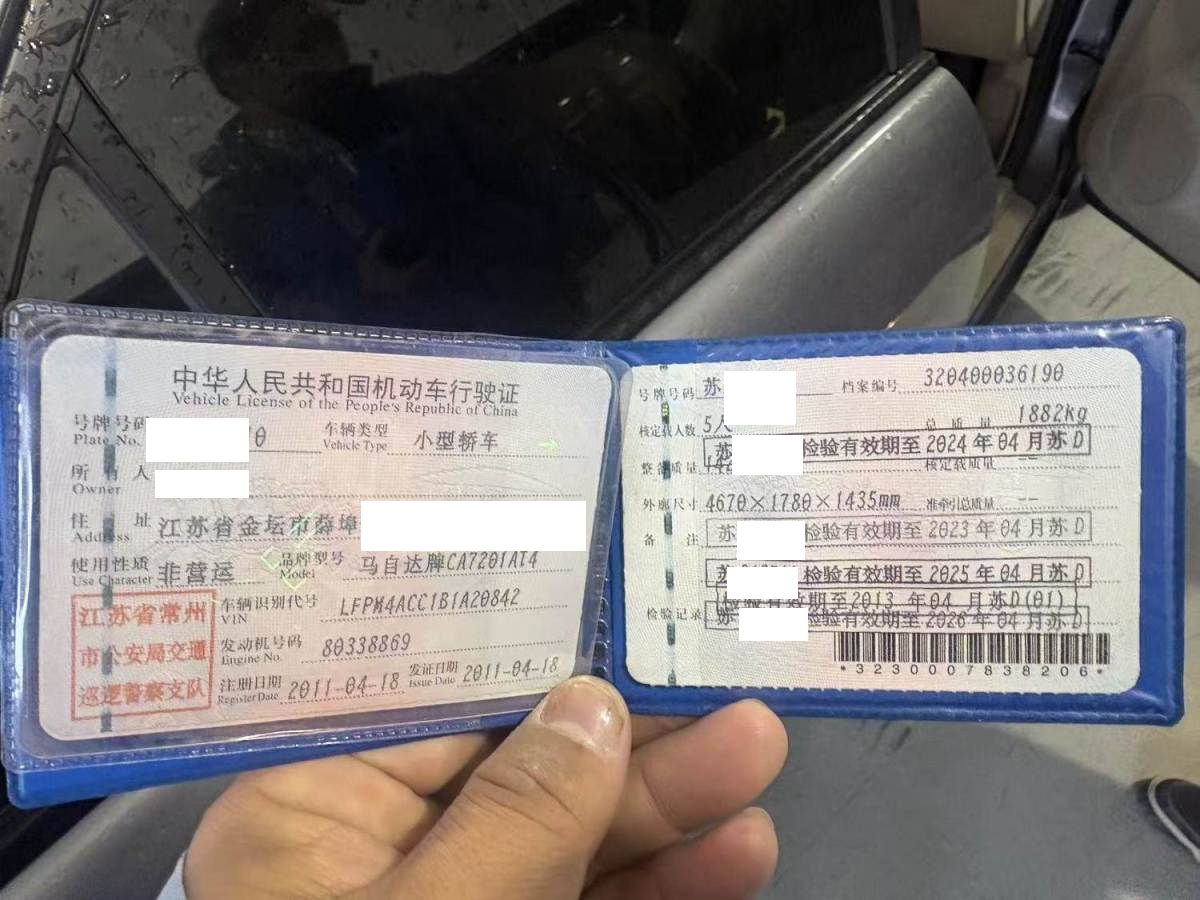 中华人民共和国机动车行驶证
Vehicle License of the People's Republic of China
号牌号码
Plate No.
0
车辆类型
Vehicle Type
小型轿车
所有人
Owner
住址
Address
江苏省金坛市薛埠
使用性质
Use Character
非营运
品牌型号
Model
马自达牌CA7201AT4
江苏省常州
市公安局交通
巡逻警察支队
车辆识别代号
VIN
LFPM4ACC1B1A20842
发动机号码
Engine No.
80338869
注册日期
Register Date
2011-04-18
发证日期
Issue Date
2011-04-18
号牌号码
苏
档案编号
320400036190
核定载人数
5人
总质量
1882kg
整备质量
苏
检验有效期至2024年04月苏D
核定载质量
--
外廓尺寸
4670×1780×1435mm
准牵引总质量
--
备注
苏
检验有效期至2023年04月苏D
苏
检验有效期至2025年04月苏D
检验有效期至2013年04月苏D(01)
检验记录
苏
检验有效期至2026年04月苏D
*3230007838206*